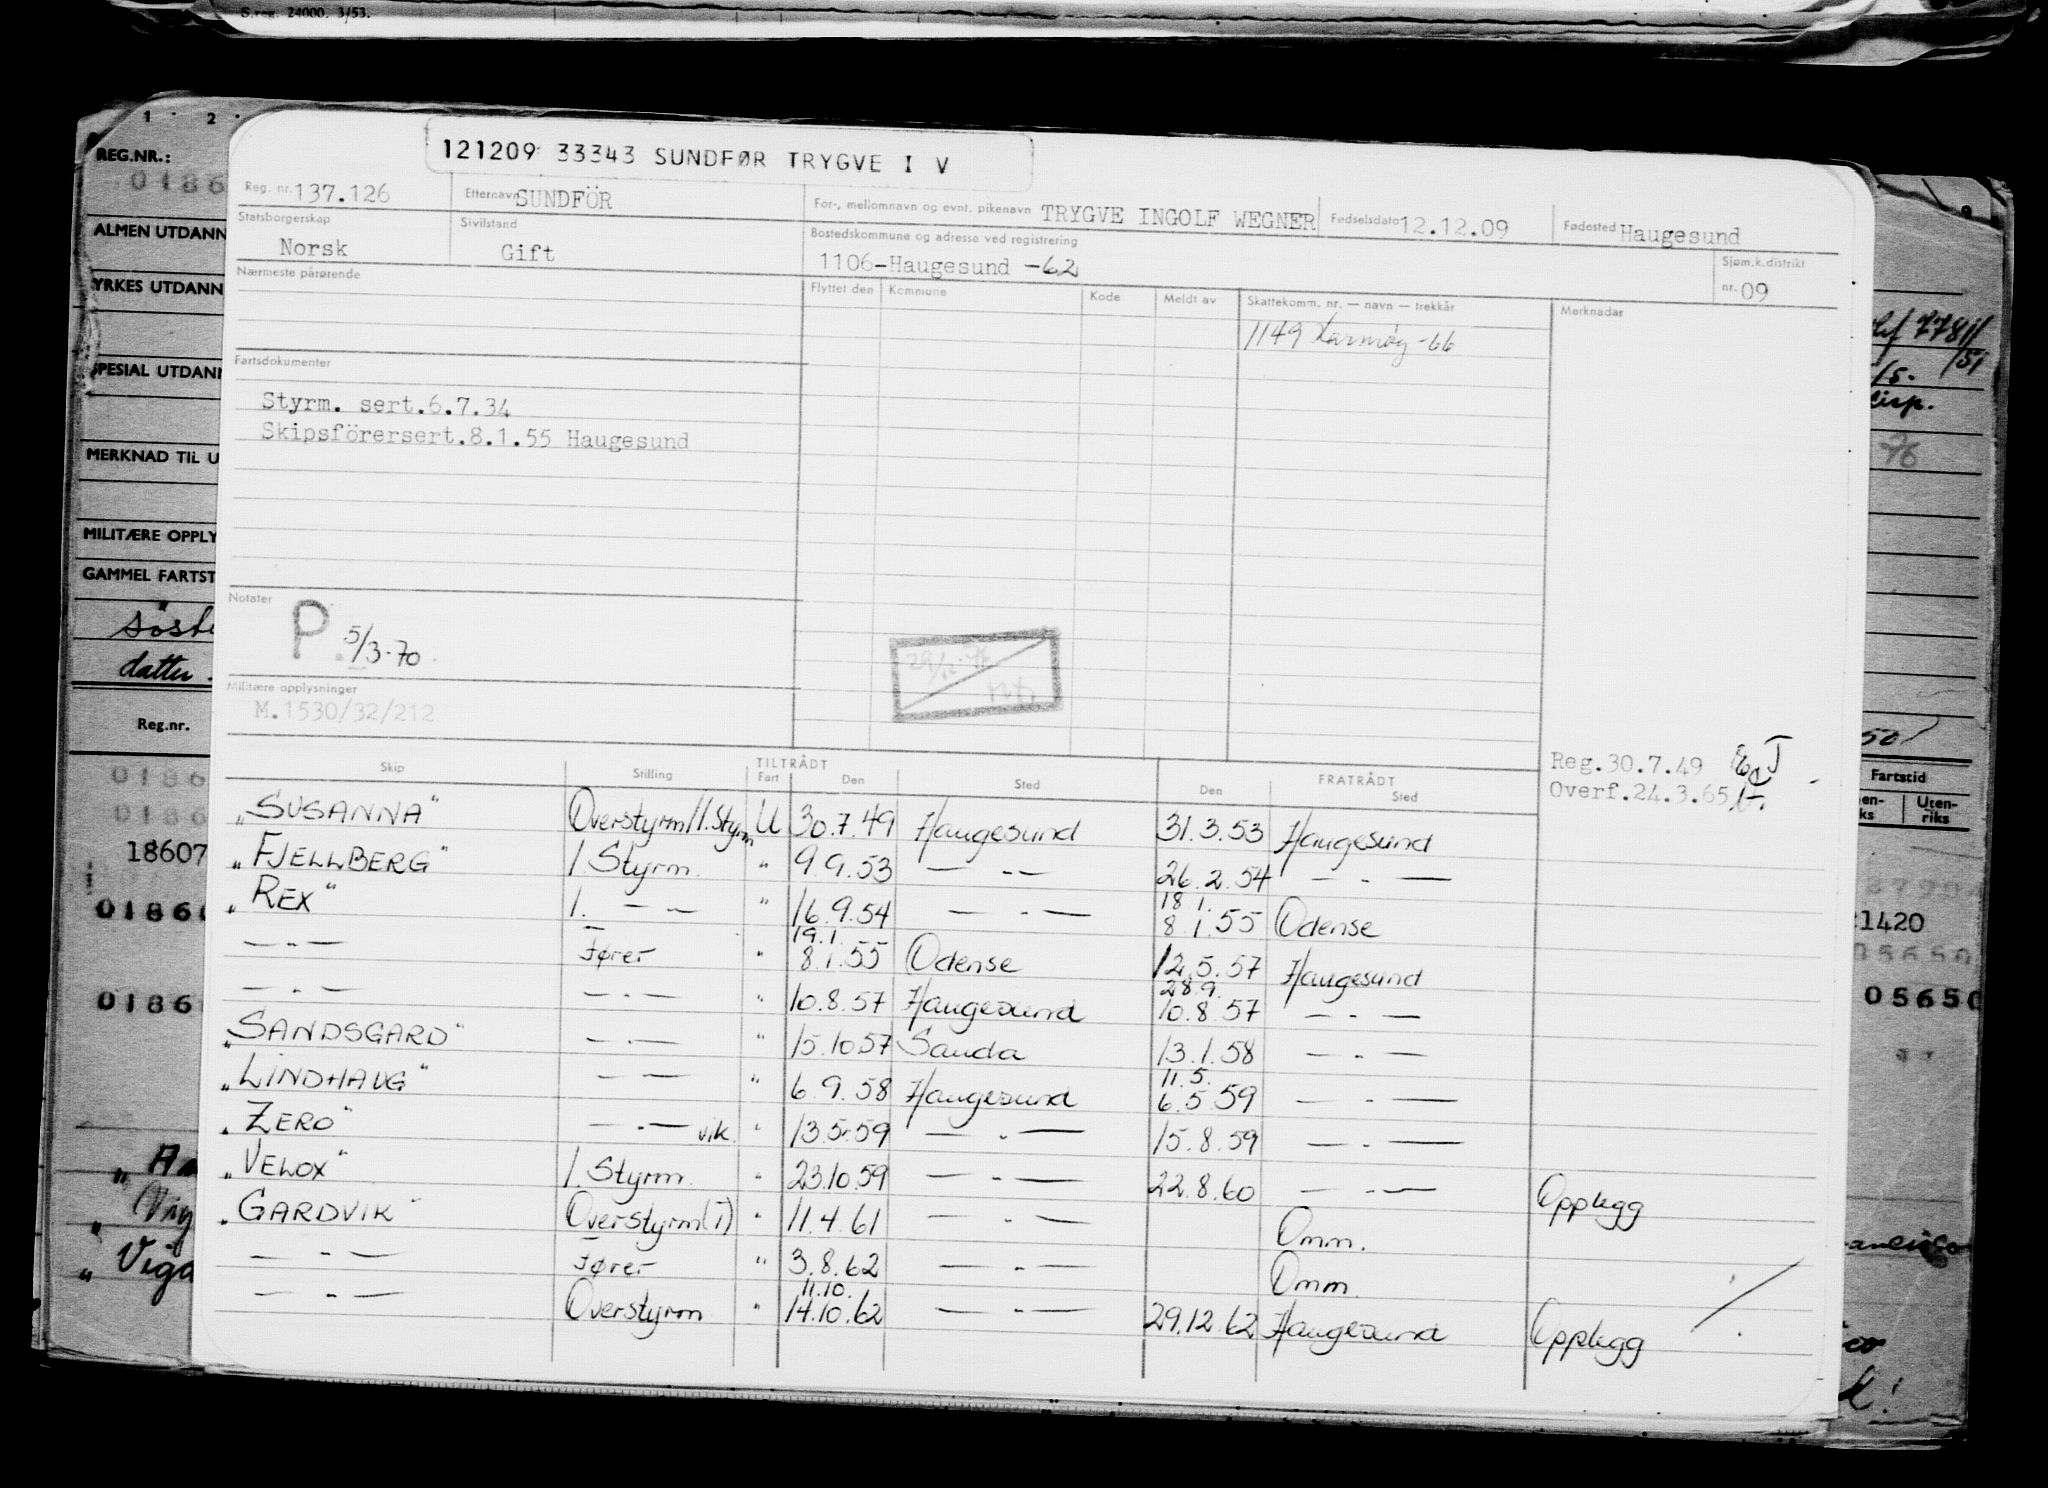 S.reg. 24000. 3/53.
1 · 2 ·
REG.NR.:
0186
ALMEN UTDANN
YRKES UTDANN
SPESIAL UTDANN
MERKNAD TIL U
MILITÆRE OPPLY
GAMMEL FARTST
datter
Reg.nr.
0186
0186
18607
0186
0186
121209 33343 SUNDFØR TRYGVE I V
Reg. nr. 137.126 Etternavn SUNDFÖR For-, mellomnavn og evnt. pikenavn TRYGVE INGOLF WEGNER Fødselsdato 12.12.09 Fødested Haugesund
Statsborgerskap Norsk Sivilstand Gift Bostedskommune og adresse ved registrering 1106-Haugesund -62 Sjøm.k.distrikt nr. 09
Nærmeste pårørende Flyttet den Kommune Kode Meldt av Skattekomm. nr. — navn — trekkår Merknader
1149 Karmøy -66
Fartsdokumenter
Styrm. sert.6.7.34
Skipsförersert.8.1.55 Haugesund
Notater
P 5/3-70
Militære opplysninger
M.1530/32/212
Reg.30.7.49
Overf.24.3.65
TILTRÅDT FRATRÅDT
Skip Stilling Fart Den Sted Den Sted
"SUSANNA" Overstyrm/1.Styrm U 30.7.49 Haugesund 31.3.53 Haugesund
"FJELLBERG" 1 Styrm. " 9.9.53 — - — 26.2.54 — - —
"REX" 1. — - — " 16.9.54 — - — 18 1. 8.1.55 Odense
— - — Fører " 19.1. 8.1.55 Odense 12.5.57 Haugesund
— - — — - — " 10.8.57 Haugesund 28.9. 10.8.57 — - —
"SANDSGARD" — - — " 15.10.57 Sauda 13.1.58 — - —
"LINDHAUG" — - — " 6.9.58 Haugesund 11.5. 6.5.59 — - —
"ZERO" — - — vik. " 13.5.59 — - — 15.8.59 — - —
"VELOX" 1. Styrm. " 23.10.59 — - — 22.8.60 — - — Opplegg
"GARDVIK" Overstyrm(I) " 11.4.61 — - — Omm.
— - — Fører " 3.8.62 — - — Omm.
— - — Overstyrm " 11.10. 14.10.62 — - — 29.12.62 Haugesund Opplegg
Fartstid
Uten-
riks
21420
05650
05650